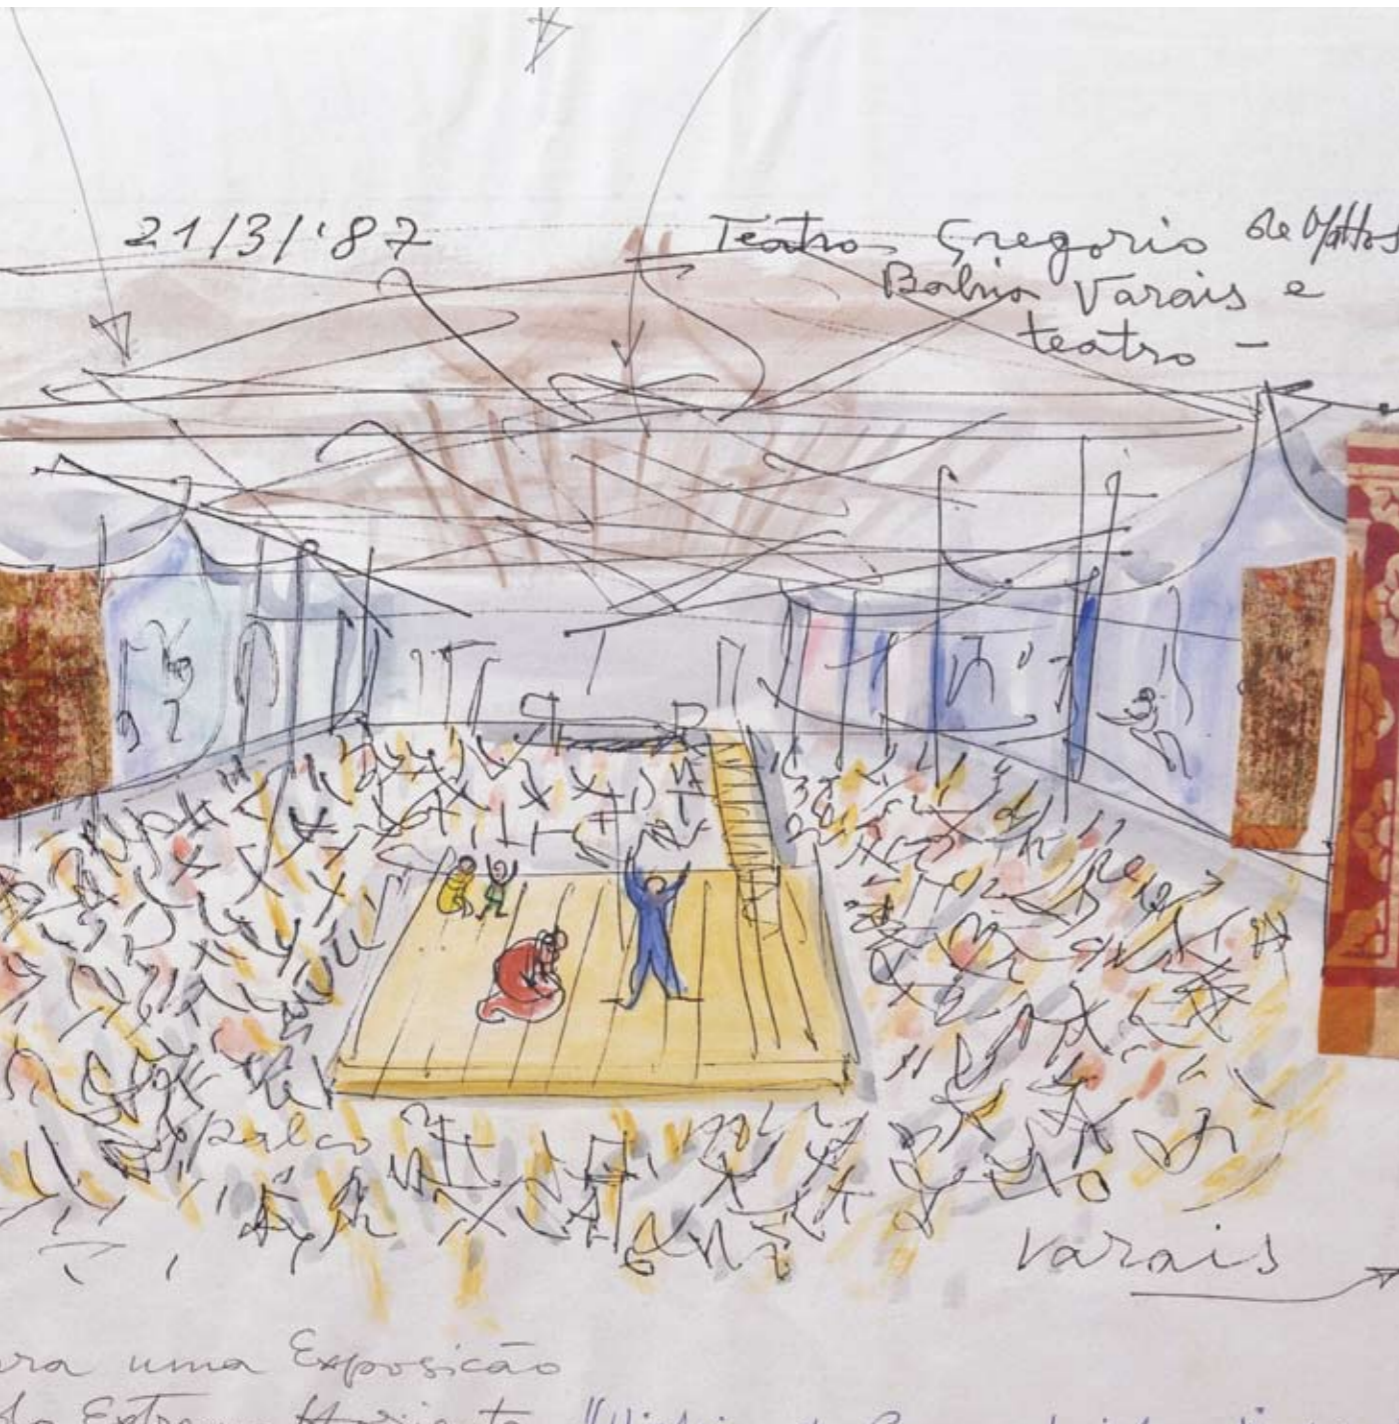 21/3/'87
Teatro Gregorio de Mattos
Bahia Varais e
teatro –
palco
Varais
ra uma Exposicão
do Extremo